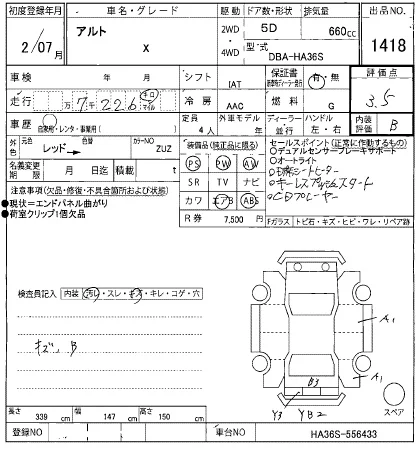 初度登録年月
車名・グレード
駆動
ドア数・形状
排気量
出品NO.
2/07月
アルト
X
2WD
・
4WD
5D
660cc
型式
DBA-HA36S
1418
車検
年
月
シフト
IAT
保証書
有・無
評価点
走行
万7千226
キロ
マイル
冷房
AAC
燃料
G
3.5
車歴
自家用・レンタ・事業用( )
定員
4人
外車モデル
年
ディーラー
並行
ハンドル
左・右
内装
評価
B
外色
元色
レッド
色替
カラーNO
ZUZ
装備品(純正品に限る)
PS PW AW
SR TV ナビ
カワ エアB ABS
セールスポイント(正常に作動するもの)
○デュアルセンサーブレーキサポート
○オートライト
○キーレスプッシュスタート
○CDプレーヤー
名義変更
期限
月
日迄
積載
t
注意事項(欠品・修復・不具合箇所および状態)
●現状=エンドパネル曲がり
●荷室クリップ1個欠品
R券
7,500円
Fガラス
トビ石・キズ・ヒビ・ワレ・リペア跡
検査員記入
内装
汚レ・スレ・キズ・キレ・コゲ・穴
キズ、B
A1
A1
B3
Y3
YB2
スペア
長さ
339
cm
幅
147
cm
高さ
150
cm
登録NO
車台NO
HA36S-556433